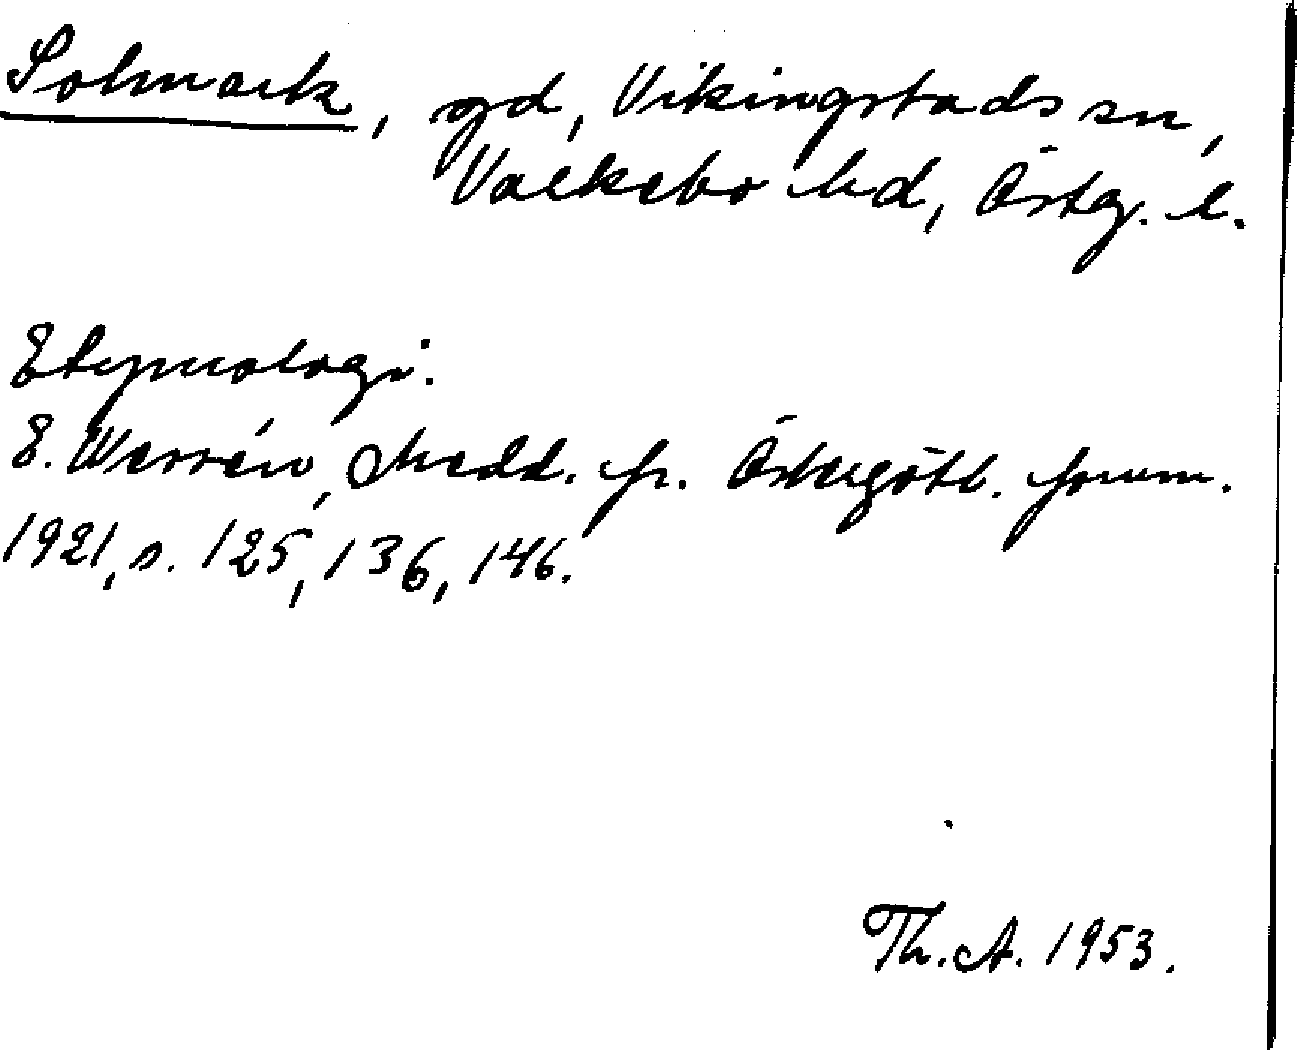 Solmark, gd, Vikingstads sn,
Valkebo hd, Östg. l.
Etymologi.
E. Wessén, Medd. fr. Östergötl. fornm.
1921, s. 125, 136, 146.
Th. A. 1953.